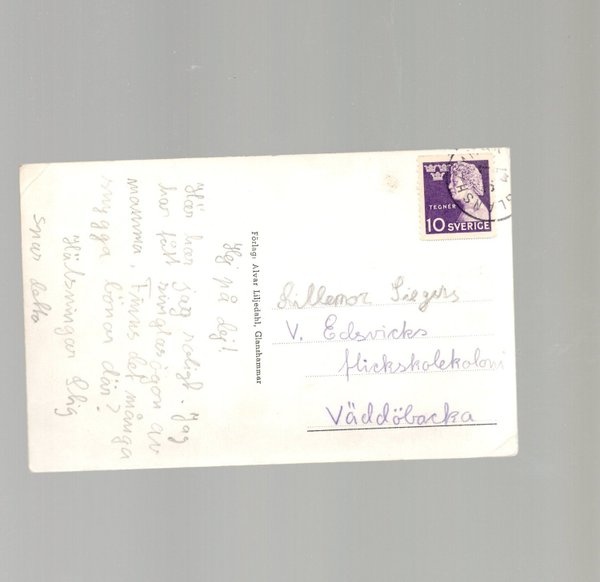 Hej på dej!
Här har jag roligt. Jag
har fått av
mamma. Finns det många
snygga där?
Hälsningar Stig
Svar detta
Förlag: Alvar Liljedahl, Glanshammar
TEGNÉR
10 SVERIGE
Lillemor Siegers
V. Edsvicks
flickskolekoloni
Väddöbacka